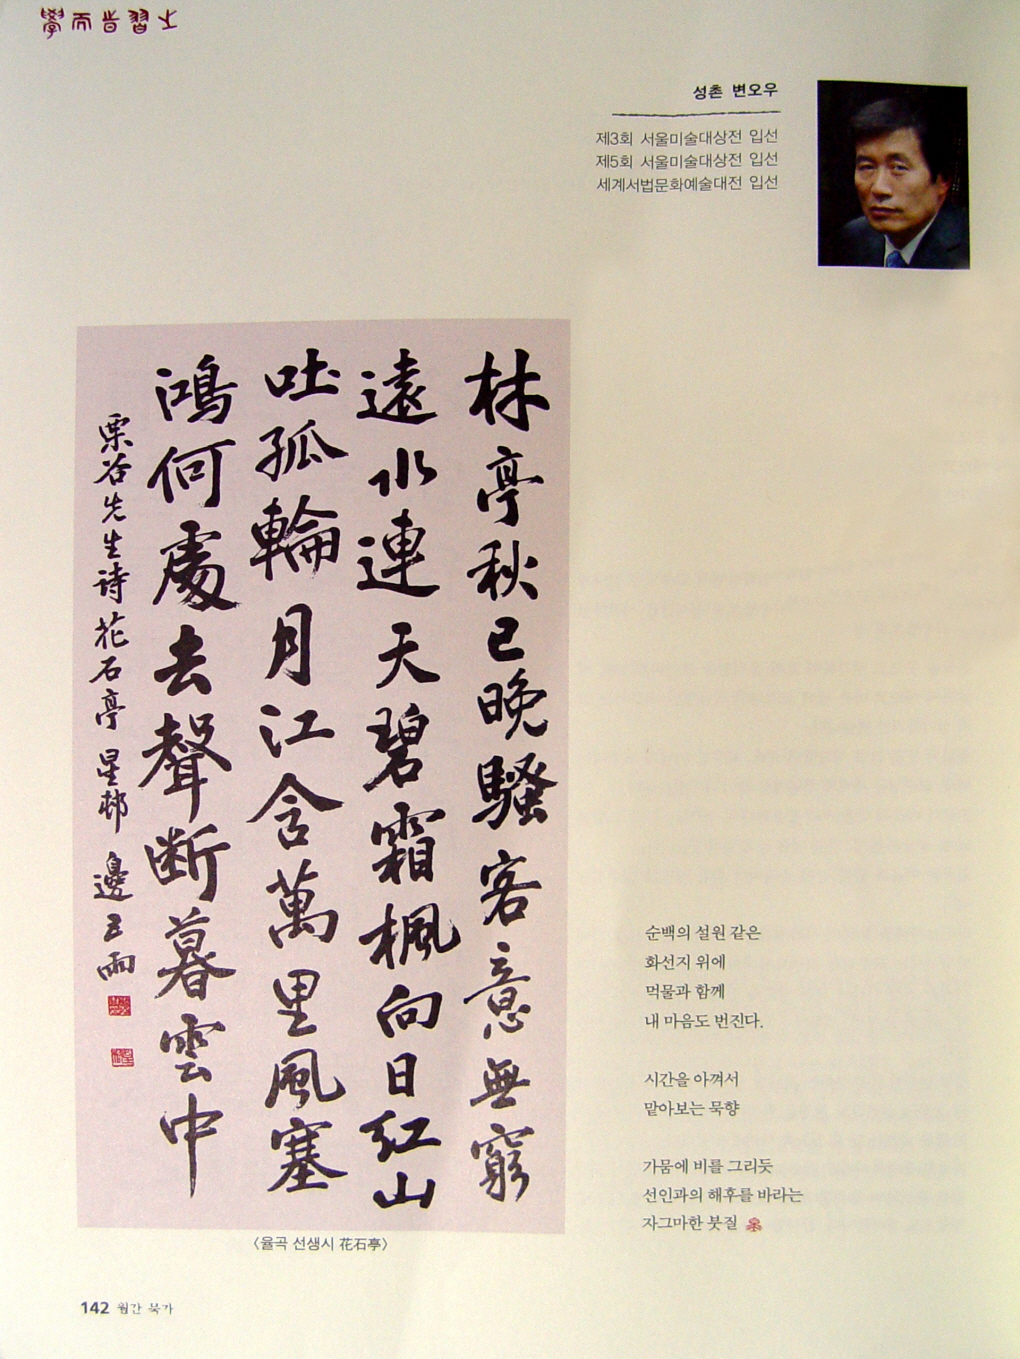 學而時習之
성촌 변오우
제3회 서울미술대상전 입선
제5회 서울미술대상전 입선
세계서법문화예술대전 입선
林亭秋已晚騷客意無窮
遠水連天碧霜楓向日紅山
吐孤輪月江含萬里風塞
鴻何處去聲斷暮雲中
栗谷先生詩花石亭 星邨 邊五雨
〈율곡 선생시 花石亭〉
순백의 설원 같은
화선지 위에
먹물과 함께
내 마음도 번진다.
시간을 아껴서
맡아보는 묵향
가뭄에 비를 그리듯
선인과의 해후를 바라는
자그마한 붓질
142 월간 묵가